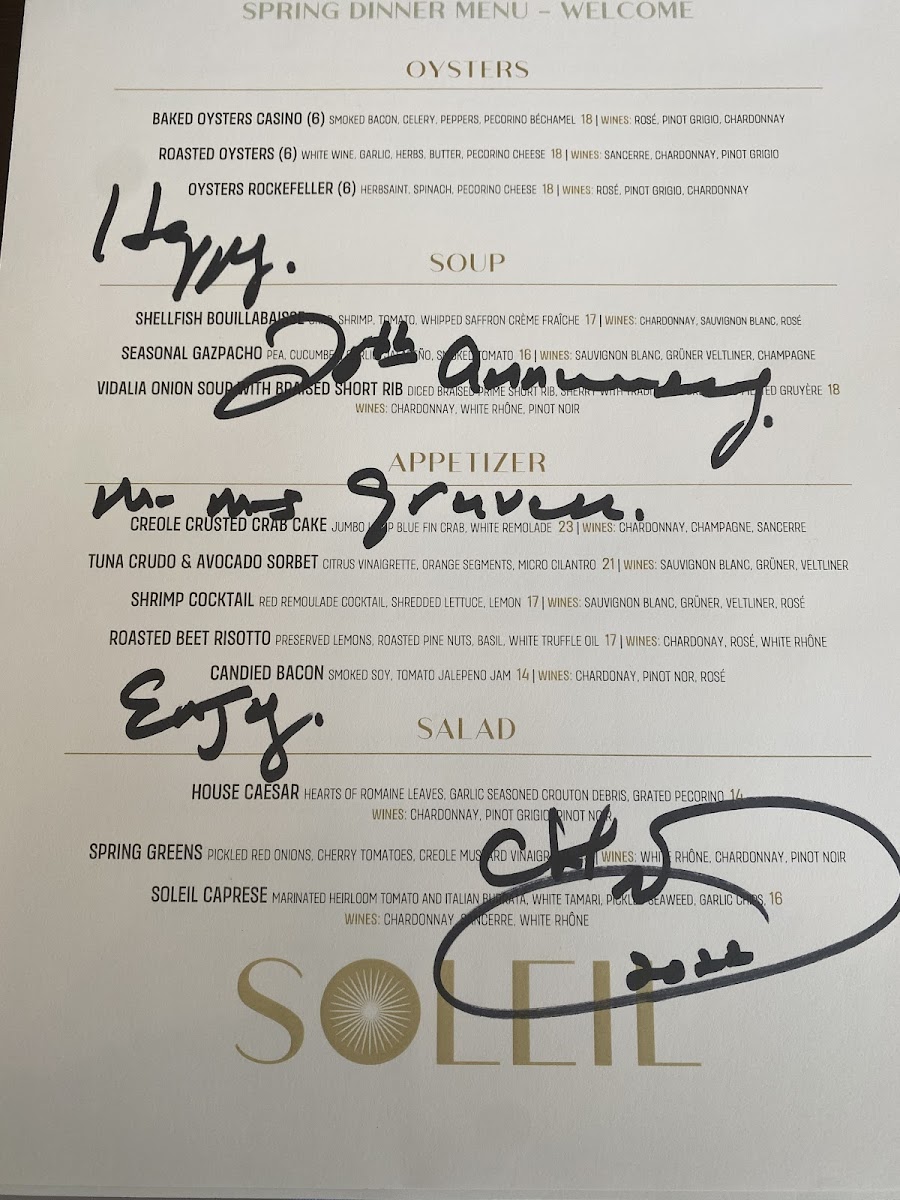 SPRING DINNER MENU – WELCOME
OYSTERS
BAKED OYSTERS CASINO (6) SMOKED BACON, CELERY, PEPPERS, PECORINO BÉCHAMEL 18 | WINES: ROSÉ, PINOT GRIGIO, CHARDONNAY
ROASTED OYSTERS (6) WHITE WINE, GARLIC, HERBS, BUTTER, PECORINO CHEESE 18 | WINES: SANCERRE, CHARDONNAY, PINOT GRIGIO
OYSTERS ROCKEFELLER (6) HERBSAINT, SPINACH, PECORINO CHEESE 18 | WINES: ROSÉ, PINOT GRIGIO, CHARDONNAY
Happy.
SOUP
SHELLFISH BOUILLABAISSE SHRIMP, TOMATO, WHIPPED SAFFRON CRÈME FRAÎCHE 17 | WINES: CHARDONNAY, SAUVIGNON BLANC, ROSÉ
20th Anniversary.
SEASONAL GAZPACHO PEA, CUCUMBER, SMOKED TOMATO 16 | WINES: SAUVIGNON BLANC, GRÜNER VELTLINER, CHAMPAGNE
VIDALIA ONION SOUP WITH BRAISED SHORT RIB DICED BRAISED PRIME SHORT RIB, SHERRY GRUYÈRE 18
WINES: CHARDONNAY, WHITE RHÔNE, PINOT NOIR
APPETIZER
Mr Mrs
CREOLE CRUSTED CRAB CAKE JUMBO LUMP BLUE FIN CRAB, WHITE REMOLADE 23 | WINES: CHARDONNAY, CHAMPAGNE, SANCERRE
TUNA CRUDO & AVOCADO SORBET CITRUS VINAIGRETTE, ORANGE SEGMENTS, MICRO CILANTRO 21 | WINES: SAUVIGNON BLANC, GRÜNER, VELTLINER
SHRIMP COCKTAIL RED REMOULADE COCKTAIL, SHREDDED LETTUCE, LEMON 17 | WINES: SAUVIGNON BLANC, GRÜNER, VELTLINER, ROSÉ
ROASTED BEET RISOTTO PRESERVED LEMONS, ROASTED PINE NUTS, BASIL, WHITE TRUFFLE OIL 17 | WINES: CHARDONAY, ROSÉ, WHITE RHÔNE
CANDIED BACON SMOKED SOY, TOMATO JALEPENO JAM 14 | WINES: CHARDONAY, PINOT NOR, ROSÉ
Enjoy.
SALAD
HOUSE CAESAR HEARTS OF ROMAINE LEAVES, GARLIC SEASONED CROUTON DEBRIS, GRATED PECORINO 14
WINES: CHARDONNAY, PINOT GRIGIO, PINOT NOIR
SPRING GREENS PICKLED RED ONIONS, CHERRY TOMATOES, CREOLE MUSTARD | WINES: WHITE RHÔNE, CHARDONNAY, PINOT NOIR
SOLEIL CAPRESE MARINATED HEIRLOOM TOMATO AND ITALIAN BURRATA, WHITE TAMARI, PICKLED SEAWEED, GARLIC CHIPS, 16
WINES: CHARDONNAY, SANCERRE, WHITE RHÔNE
2022
SOLEIL